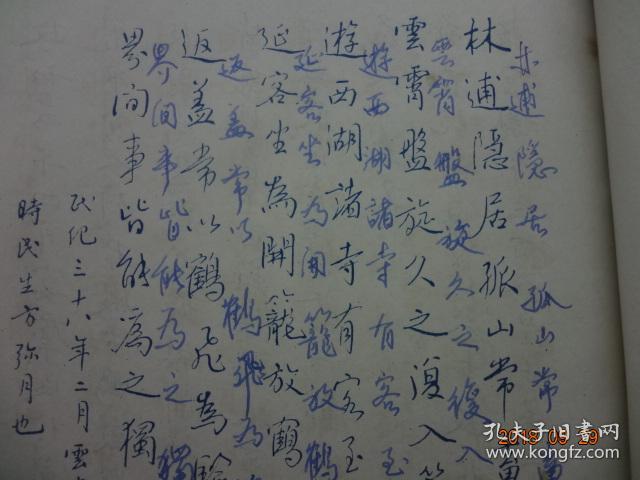 林逋隱居孤山常
林逋隱居孤山常
雲霄盤旋久之復入
雲霄盤旋久之復入
遊西湖諸寺有客至
遊西湖諸寺有客至
延客坐為開籠放鶴
延客坐為開籠放鶴
返蓋常以鶴飛為
返蓋常以鶴飛為驗
界間事皆能為之獨
界間事皆能為之獨
民紀三十八年二月雲
時民生方弥月也
2018 09 29
孔夫子旧书网